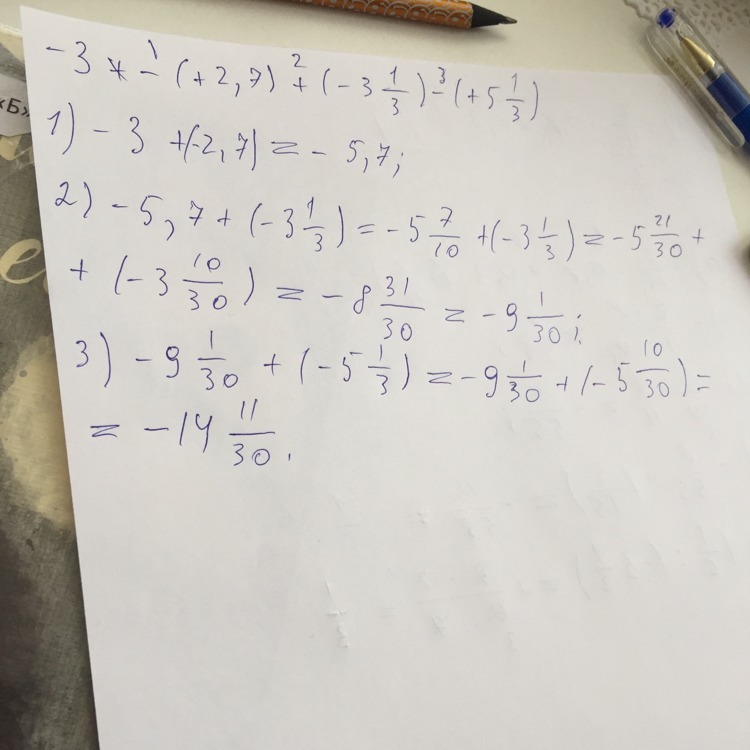 -3 * - (+2,7) + (-3 1/3) - (+5 1/3)
1 2 3
«Б»
1) -3 +(-2,7) = -5,7;
2) -5,7 + (-3 1/3) = -5 7/10 + (-3 1/3) = -5 21/30 +
+ (-3 10/30) = -8 31/30 = -9 1/30;
3) -9 1/30 + (-5 1/3) = -9 1/30 + (-5 10/30) =
= -14 11/30.